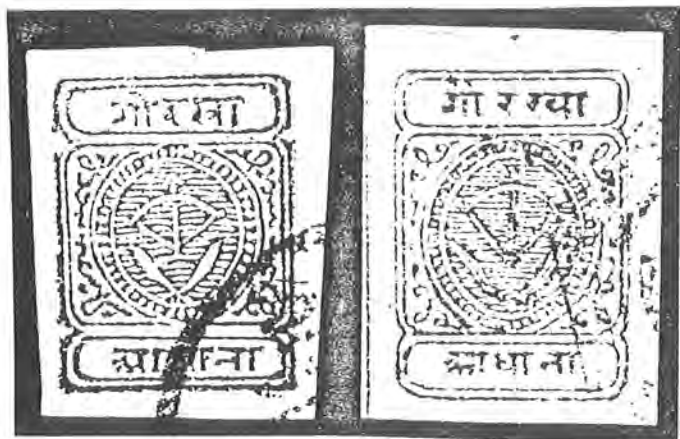 गोरखा
आधाना
गोरखा
आधाना